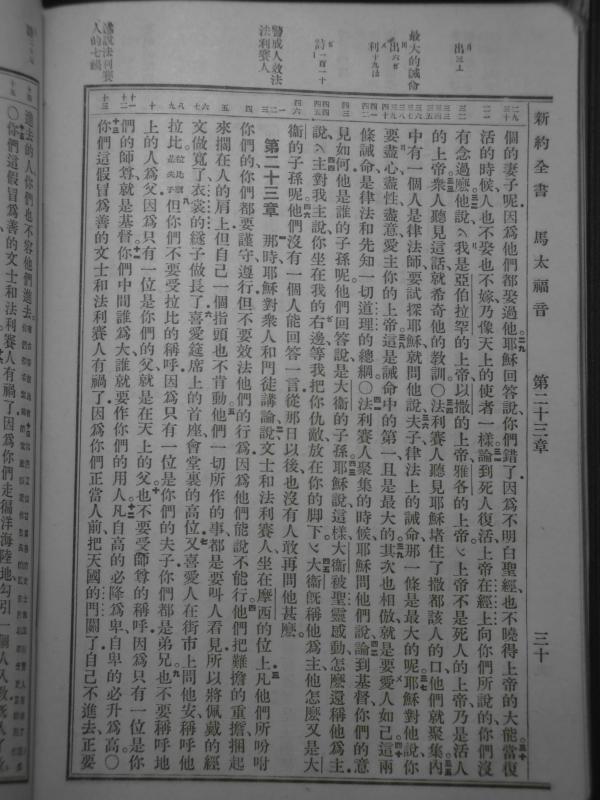 新約全書　馬太福音　第二十三章　三十
個的妻子呢因爲他們都娶過他耶穌回答說你們錯了因爲不明白聖經也不曉得上帝的大能當復
活的時候人也不娶也不嫁乃像天上的使者一樣論到死人復活上帝在經上向你們所說的你們沒
有念過麽他說我是亞伯拉罕的上帝以撒的上帝雅各的上帝上帝不是死人的上帝乃是活人
的上帝衆人聽見這話就希奇他的敎訓○法利賽人聽見耶穌堵住了撒都該人的口他們就聚集內
中有一個人是律法師要試探耶穌就問他說夫子律法上的誡命那一條是最大的呢耶穌對他說你
要盡心盡性盡意愛主你的上帝這是誡命中的第一且是最大的其次也相倣就是要愛人如己這兩
條誡命是律法和先知一切道理的總綱○法利賽人聚集的時候耶穌問他們說論到基督你們的意
見如何他是誰的子孫呢他們回答說是大衞的子孫耶穌說這樣大衞被聖靈感動怎麽還稱他爲主
說主對我主說你坐在我的右邊等我把你仇敵放在你的脚下大衞旣稱他爲主他怎麽又是大
衞的子孫呢他們沒有一個人能回答一言從那日以後也沒有人敢再問他甚麽
第二十三章　那時耶穌對衆人和門徒講論說文士和法利賽人坐在摩西的位上凡他們所吩咐
你們的你們都要謹守遵行但不要效法他們的行爲因爲他們能說不能行他們把難擔的重擔捆起
來擱在人的肩上但自己一個指頭也不肯動他們一切所作的事都是要叫人看見所以將佩戴的經
文做寬了衣裳的繸子做長了喜愛筵席上的首座會堂裏的高位又喜愛人在街市上問他安稱呼他
拉比但你們不要受拉比的稱呼因爲只有一位是你們的夫子你們都是弟兄也不要稱呼地
上的人爲父因爲只有一位是你們的父就是在天上的父也不要受師尊的稱呼因爲只有一位是你
們的師尊就是基督你們中間誰爲大誰就要作你們的用人凡自高的必降爲卑自卑的必升爲高○
你們這假冒爲善的文士和法利賽人有禍了因爲你們正當人前把天國的門關了自己不進去正要
進去的人你們也不容他們進去
○你們這假冒爲善的文士和法利賽人有禍了因爲你們走徧洋海陸地勾引一個人入敎
最大的誡命
警戒人效法
法利賽人